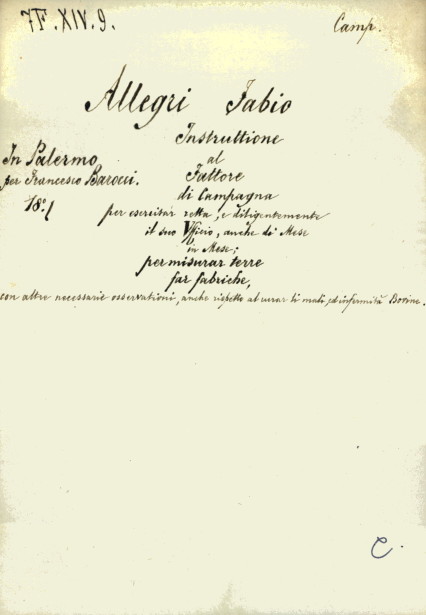 7F. XIV. 9.
Camp.
Allegri Fabio
Instruttione
al
Fattore
di Campagna
per esercitar retta, e diligentemente
il suo Vfficio, anche di Mese
in Mese;
per misurar terre
far fabriche,
con altre necessarie osservationi, anche rispetto al curar li mali, ed infermità Bovine.
In Palermo
per Francesco Barocci.
C.